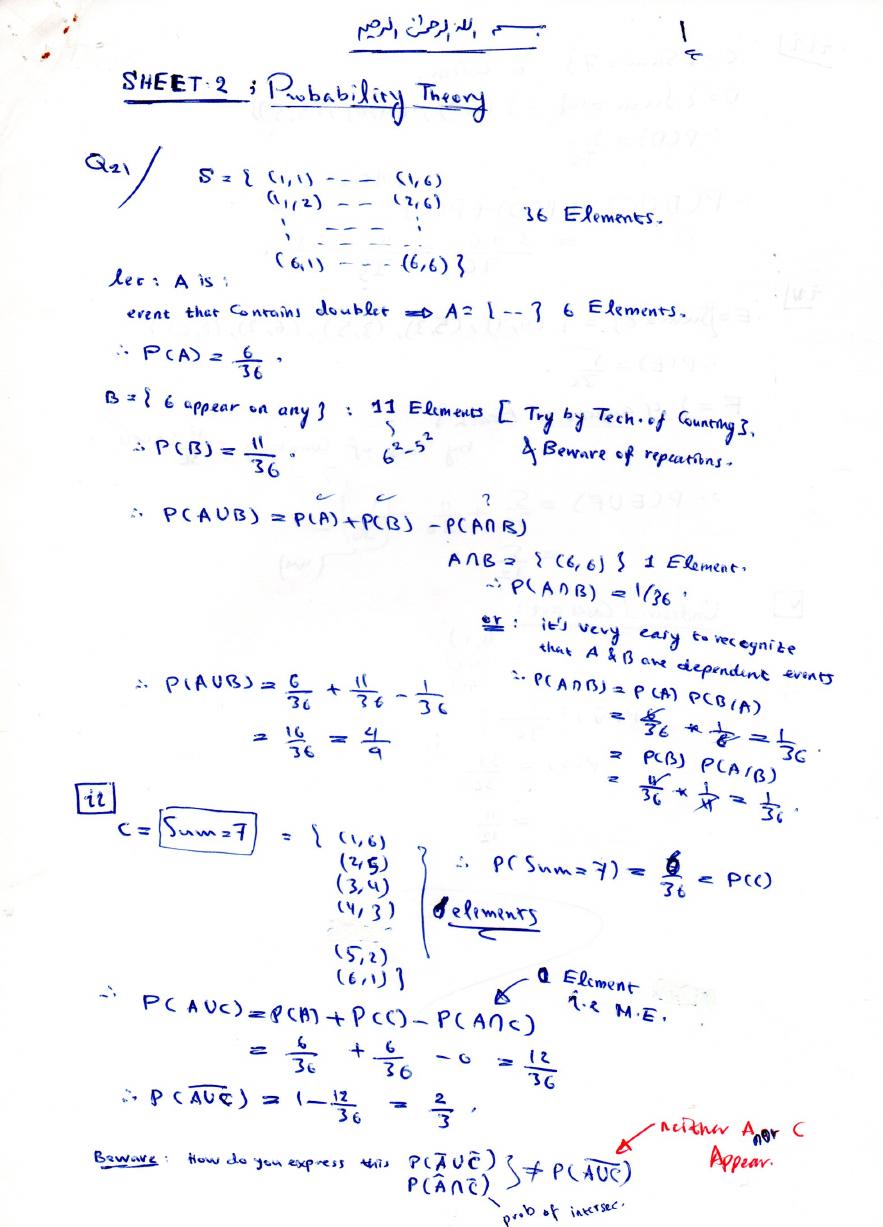 بسم الله الرحمن الرحيم
1
SHEET-2 ; Probability Theory
Q21/ S = { (1,1) --- (1,6)
(1,2) -- (2,6)
36 Elements.
(6,1) ---- (6,6) }
let : A is :
event that Contains doublet ⇒ A = { -- } 6 Elements.
∴ P(A) = 6/36 .
B = { 6 appear on any } : 11 Elements [ Try by Tech. of Counting }.
∴ P(B) = 11/36 . 6²-5² & Beware of repeations.
∴ P(A∪B) = P(A) + P(B) - P(A∩B)
✓ ✓ ?
A∩B = { (6,6) } 1 Element.
∴ P(A∩B) = 1/36 .
or : it's very easy to recognize
that A & B are dependent events
∴ P(A∩B) = P(A) P(B/A)
= 6/36 * 1/6 = 1/36 .
= P(B) P(A/B)
= 11/36 * 1/11 = 1/36 .
∴ P(A∪B) = 6/36 + 11/36 - 1/36
= 16/36 = 4/9
ii
C = Sum=7 = { (1,6)
(2,5)
(3,4)
(4,3)
(5,2)
(6,1) }
6 elements
∴ P(Sum=7) = 6/36 = P(C)
0 Element
i.e M.E.
∴ P(A∪C) = P(A) + P(C) - P(A∩C)
= 6/36 + 6/36 - 0 = 12/36
∴ P(A̅∪̅C̅) = 1 - 12/36 = 2/3 .
neither A nor C
Appear.
Beware : How do you express this P(A̅∪C̅) } ≠ P(A̅∪̅C̅)
P(A̅∩C̅)
prob of intersec.